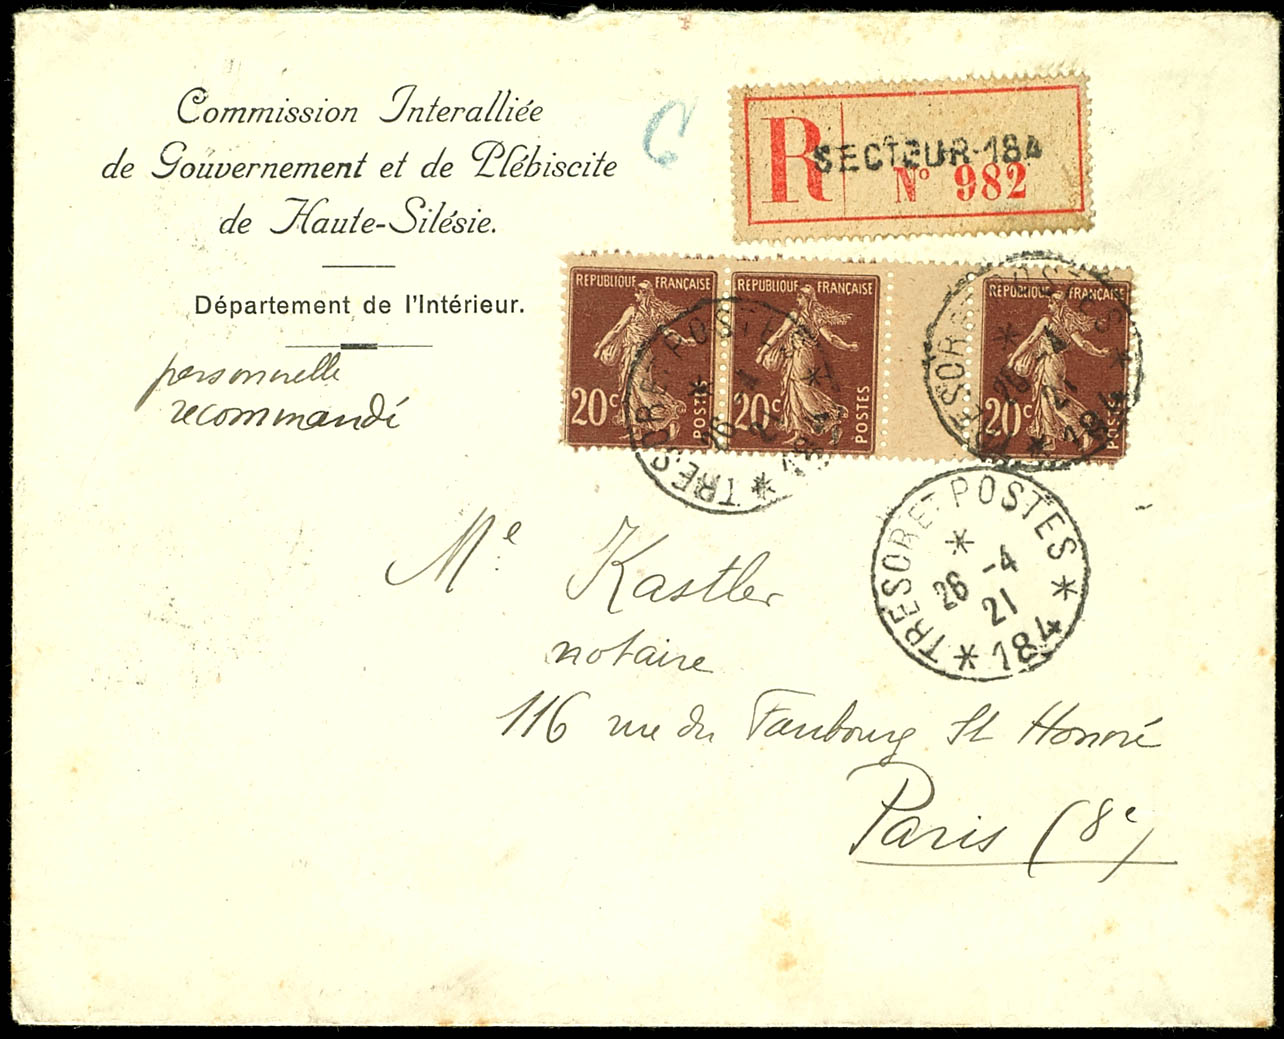 Commission Interalliée
de Gouvernement et de Plébiscite
de Haute-Silésie.
Département de l'Intérieur.
personnelle
recommandé
C
R
SECTEUR-184
N° 982
REPUBLIQUE FRANÇAISE
20c POSTES
REPUBLIQUE FRANÇAISE
20c POSTES
REPUBLIQUE FRANÇAISE
20c POSTES
TRESOR ET POSTES
26 -4
21
* 184 *
TRESOR ET POSTES
26 -4
21
* 184 *
TRESOR ET POSTES
*
26 -4
21
* 184 *
Me Kastler
notaire
116 rue du Faubourg St Honoré
Paris (8e)